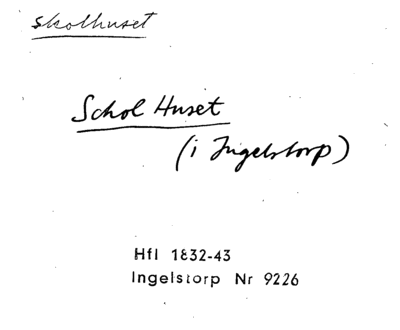 skolhuset
Schol Huset
(i Ingelstorp)
Hfl 1832-43
Ingelstorp Nr 9226